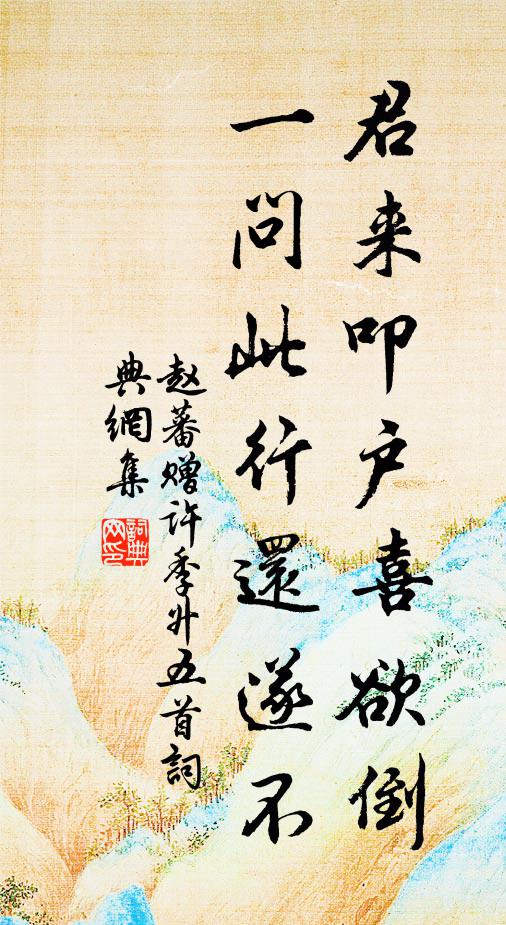 君来叩户喜欲倒
一问此行還遂不
赵蕃赠许季升五首詞
典網集
詞典网印